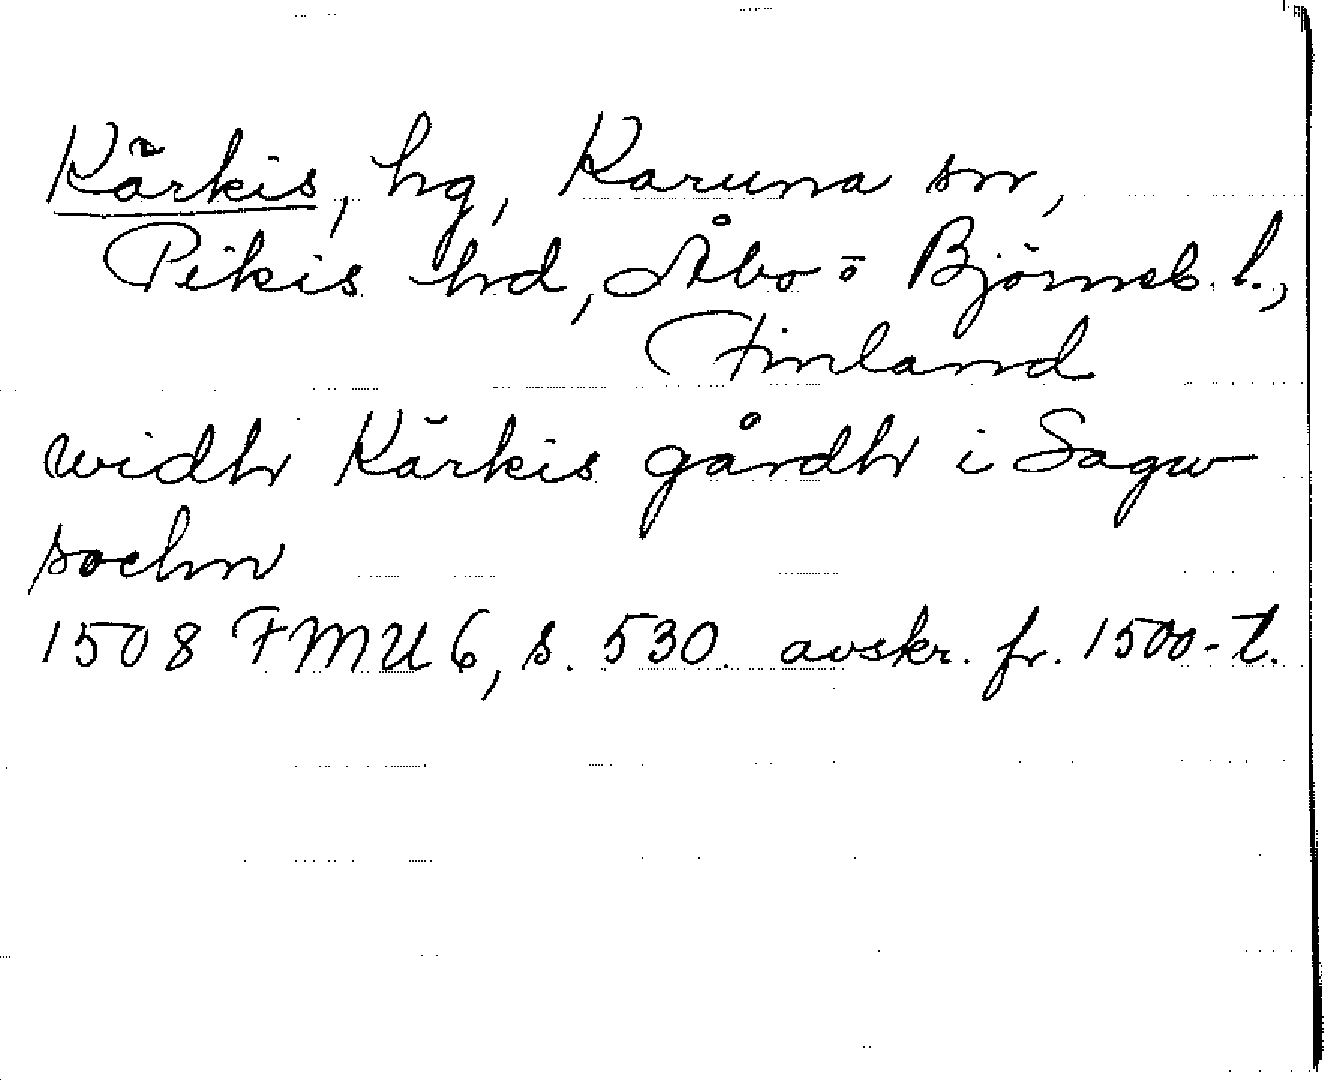 Kärkis, hg, Karuna sn,
Pikis hd, Åbo o Björneb. l.,
Finland
widh Kärkis gårdh i Sagw
sochn
1508 FMU 6, s. 530. avskr. fr. 1500-t.